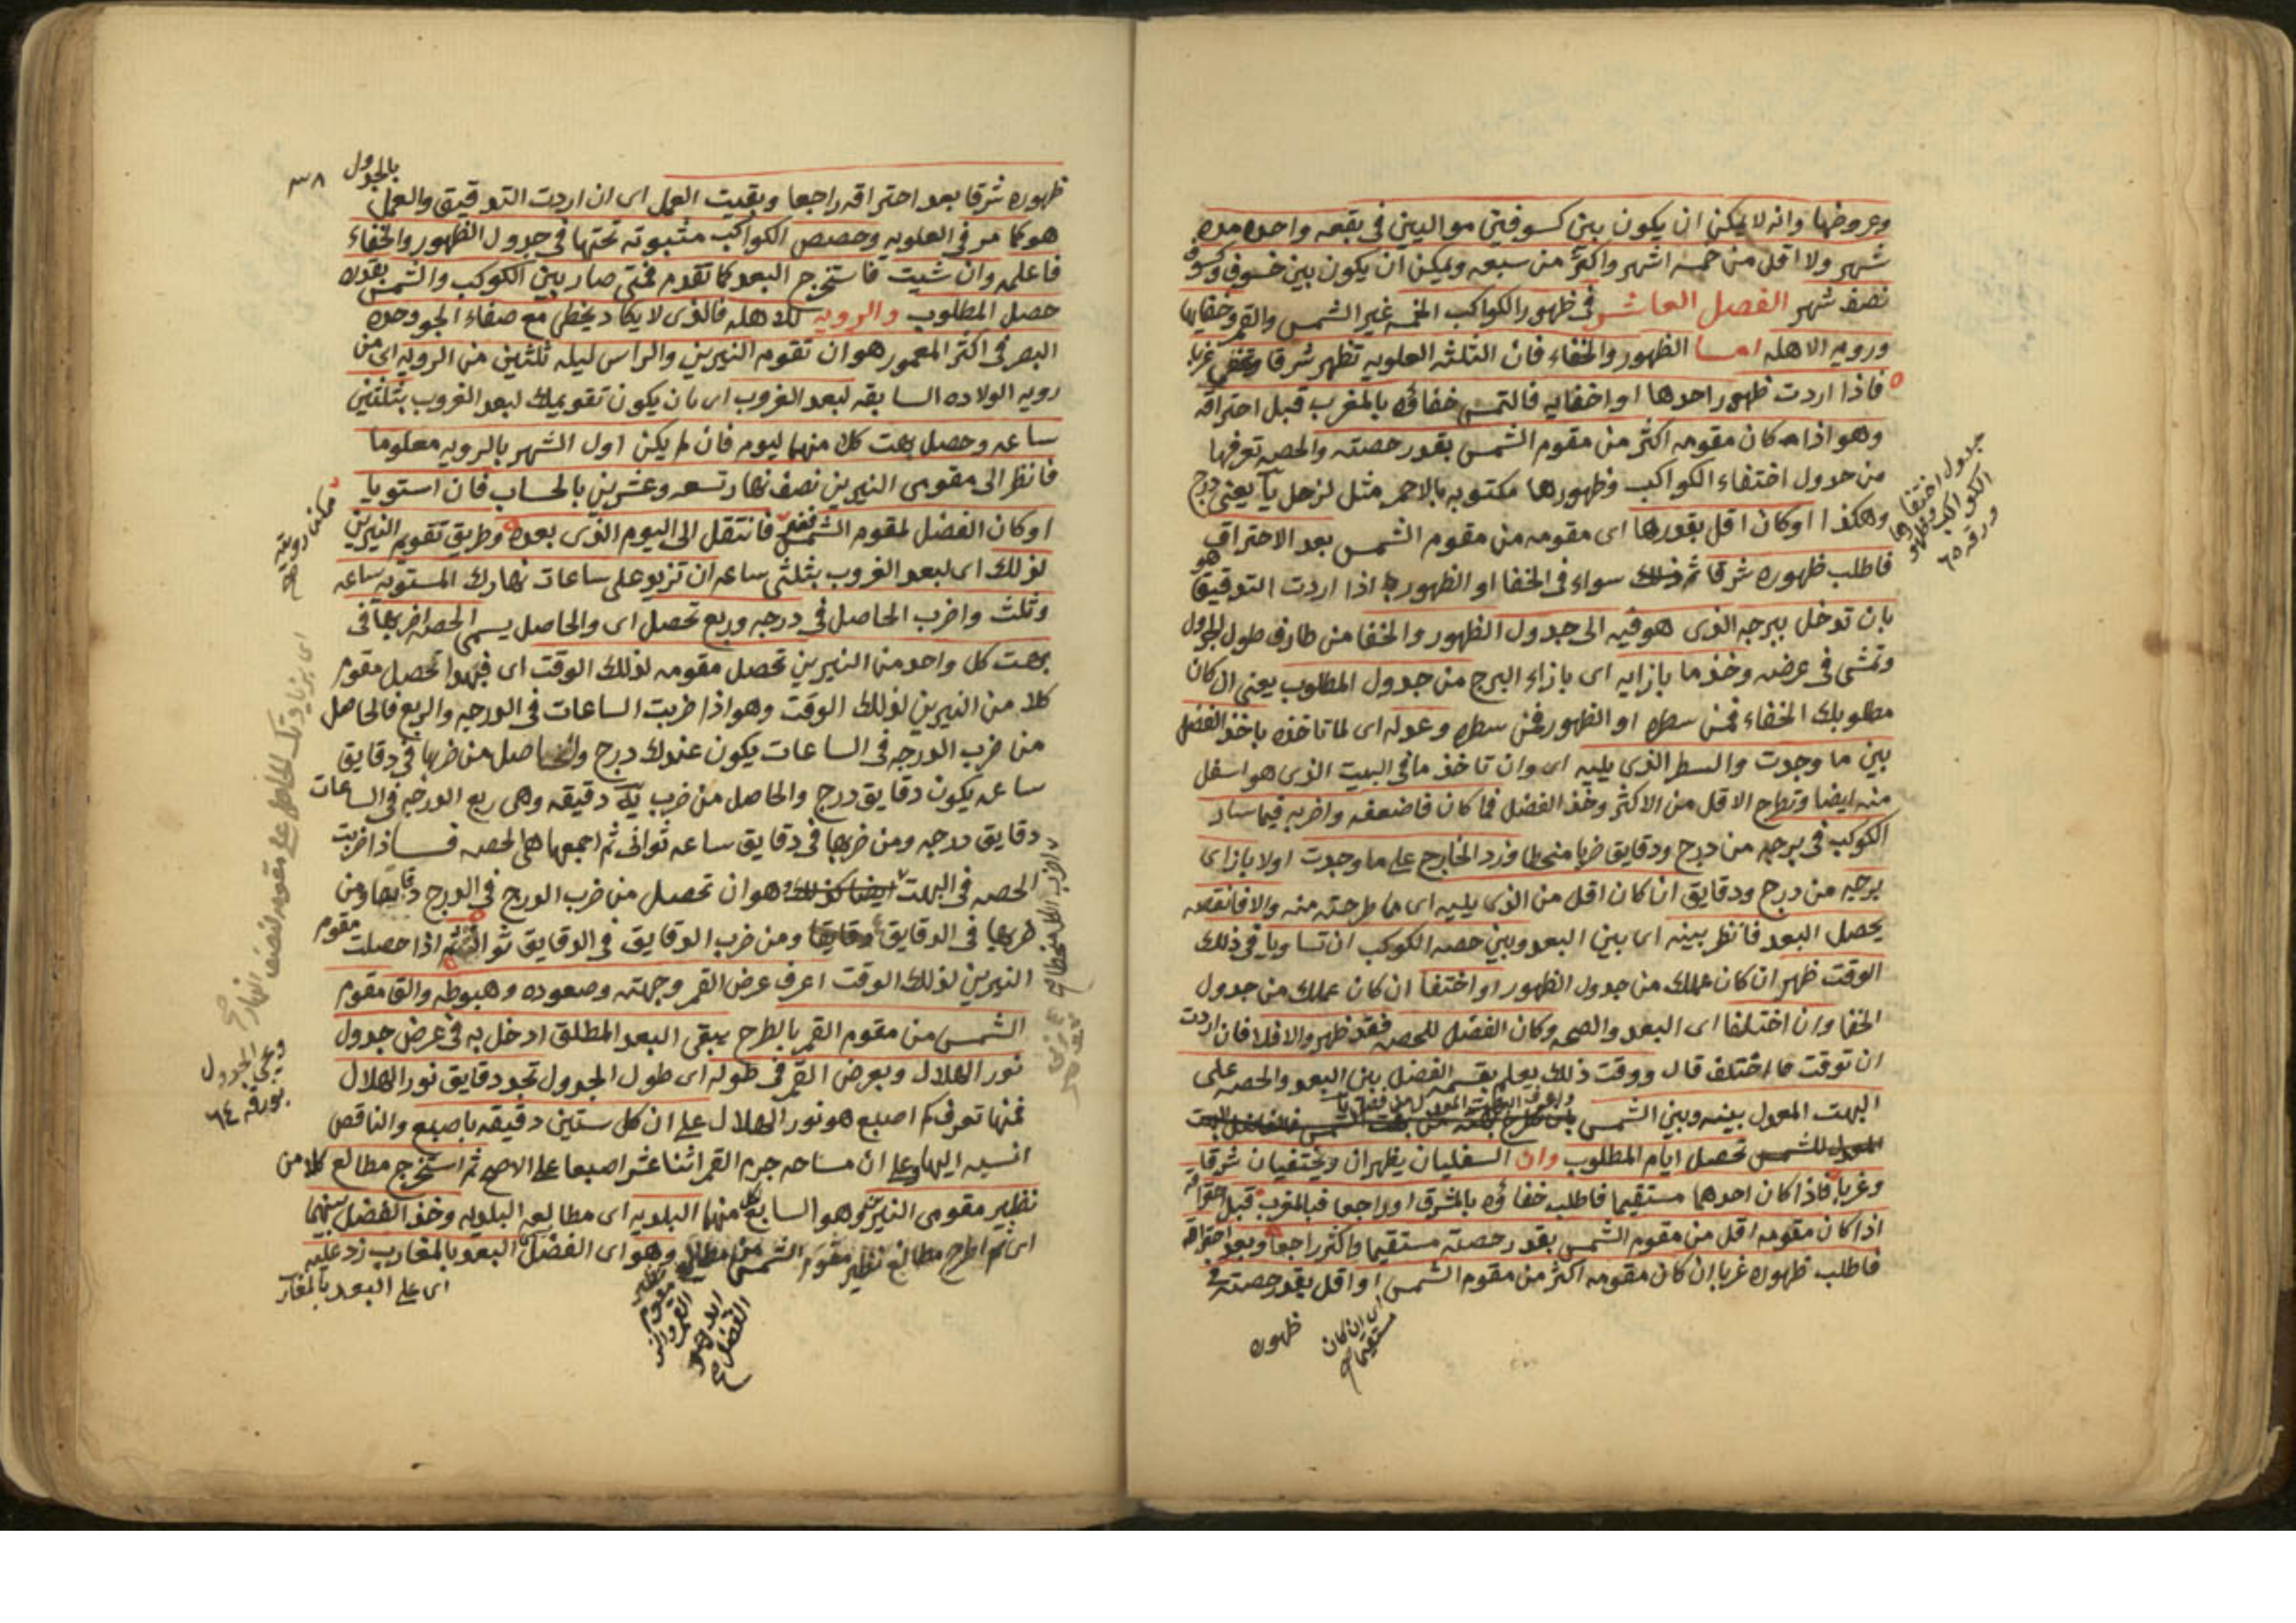 وعروضها وانه لا يمكن ان يكون بين كسوفين مواليين في بقعه واحده مده
شهر ولا اقل من خمسه اشهر واكثر من سبعه ويمكن ان يكون بين خسوف وكسوف
نصف شهر الفصل العاشر في ظهور الكواكب الخمسه غير الشمس والقمر وخفايها
ورويه الاهله اما الظهور والخفاء فان الثلثه العلويه تظهر شرقا وتخفى غربا
فاذا اردت ظهور احدها او اخفايه فالتمس خفاؤه بالمغرب قبل احتراقه
وهو اذا كان مقومه اكثر من مقوم الشمس بقدر حصته والحصه تعرفها
من جدول اختفاء الكواكب وظهورها مكتوبه بالاحمر مثل لزحل يا يعنى درج
وهكذا او كان اقل بقدرها اى مقومه من مقوم الشمس بعد الاحتراق
فاطلب ظهوره شرقا ثم ذلك سواء في الخفا او الظهور اذا اردت التدقيق هو
بان تدخل ببرجه الذى هو فيه الى جدول الظهور والخفا من طارف طول الجدول
وتمشى في عرضه وخذ ما بازايه اى بازاء البرج من جدول المطلوب يعنى ان كان
مطلوبك الخفاء فمن سطره او الظهور فمن سطره وعدله اى لما تاخذه باخذ الفضل
بين ما وجدت والسطر الذى يليه اى وان تاخذ ما في البيت الذى هو اسفل
منه ايضا وتطرح الاقل من الاكثر وخذ الفضل فما كان فاضعفه واضربه فيما سار
الكوكب في برجه من درج ودقايق ضربا منحطا وزد الخارج على ما وجدت اولا بازاى
برجه من درج ودقايق ان كان اقل من الذى يليه اى ما طرحته منه والا فانقصه
يحصل البعد فانظر بينه اى بين البعد وبين حصه الكوكب ان تساويا في ذلك
الوقت ظهر ان كان عملك من جدول الظهور او اختفا ان كان عملك من جدول
الخفا وان اختلفا اى البعد والحصه وكان الفضل للحصه فقد ظهر والا فلا فان اردت
ان توقت ما اختلف قال ووقت ذلك يعلم بقسمه الفضل بين البعد والحصه على
البهت المعدل بينه وبين الشمس
تحصل ايام المطلوب وان السفليان يظهران ويختفيان شرقا
وغربا فاذا كان احدهما مستقيما فاطلب خفاؤه بالمشرق او راجعا فبالمغرب قبل احتراقه
اذا كان مقومه اقل من مقوم الشمس بقدر حصته مستقيما واكثر راجعا وبعد احتراقه
فاطلب ظهوره غربا ان كان مقومه اكثر من مقوم الشمس او اقل بقدر حصته
اى ان كان مستقيما
ظهوره
جدول اختفا
الكواكب وظهورها
ورقه ٦٥
بالجدول ٣٨
ظهوره شرقا بعد احتراقه راجعا وبقيت العمل اى ان اردت التدقيق والعمل
هو كما مر في العلويه وحصص الكواكب مثبوته تحتها في جدول الظهور والخفاء
فاعلمه وان شيت فاستخرج البعد كما تقدم فمتى صار بين الكوكب والشمس بقدره
حصل المطلوب والرويه للاهله فالذى لا يكاد يخطى مع صفاء الجو وحده
البصر في اكثر المعمور هو ان تقوم النيرين والراس ليله ثلثين من الرويه اى من
رويه الولاده السابقه لبعد الغروب اى بان يكون تقويمك لبعد الغروب بثلثين
ساعه وحصل بهت كلا منهما ليوم فان لم يكن اول الشهر بالرويه معلوما
فانظر الى مقومى النيرين نصف نهار تسعه وعشرين بالحساب فان استويا
او كان الفضل لمقوم الشمس فانتقل الى اليوم الذى بعده وطريق تقويم النيرين
لذلك اى لبعد الغروب بثلثى ساعه ان تزيد على ساعات نهارك المستويه ساعه
وثلث واضرب الحاصل في درجه وربع تحصل اى والحاصل يسمى الحصه اضربها في
بهت كل واحد من النيرين تحصل مقومه لذلك الوقت اى فبهذا تحصل مقوم
كلا من النيرين لذلك الوقت وهو اذا ضربت الساعات في الدرجه والربع فالحاصل
من ضرب الدرجه في الساعات يكون عندك درج والحاصل من ضربها في دقايق
ساعه يكون دقايق درج والحاصل من ضرب يه دقيقه وهى ربع الدرجه في الساعات
دقايق درجه ومن ضربها في دقايق ساعه ثوانى ثم اجمعها هى الحصه فاذا ضربت
الحصه في البهت ايضا كذلك وهو ان تحصل من ضرب الدرج في الدرج دقايقا ومن
ضربها في الدقايق ومن ضرب الدقايق في الدقايق ثوالث ثم اذا حصلت مقوم
النيرين لذلك الوقت اعرف عرض القمر وجهته وصعوده وهبوطه والق مقوم
الشمس من مقوم القمر بالطرح يبقى البعد المطلق ادخل به في عرض جدول
نور الهلال وبعرض القمر في طوله اى طول الجدول تجد دقايق نور الهلال
فمنها تعرف كم اصبع هو نور الهلال على ان كل ستين دقيقه باصبع والناقص
انسبه اليها وعلى ان مساحه جرم القمر اثنا عشر اصبعا على الاصح ثم استخرج مطالع كلا من
نظير مقومى النيرين وهو السابع لكل منهما البلديه اى مطالعه البلديه وخذ الفضل بينهما
اى ثم اطرح مطالع نظير مقوم الشمس من مطالع وهو اى الفضل البعد بالمغارب زد عليه
نظير
مقوم
القمر
الفضل
اى على البعد بالمغار
ممكن رويته
اى بزيادتك الحاصل على مقومه لنصف النهار
وهى جدول
بورقه ٦٤